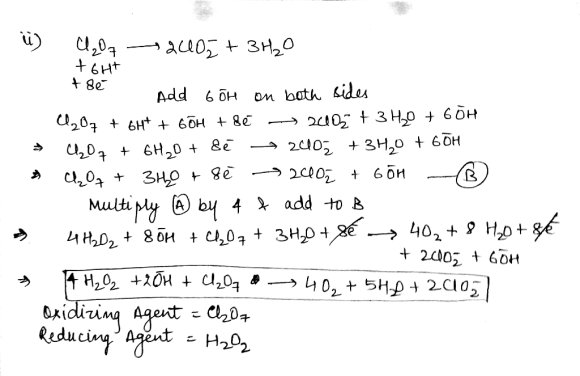 ii) Cl₂O₇ → 2ClO₂⁻ + 3H₂O
+ 6H⁺
+ 8e⁻
Add 6 ŌH on both sides
Cl₂O₇ + 6H⁺ + 6ŌH + 8e⁻ → 2ClO₂⁻ + 3H₂O + 6ŌH
⇒ Cl₂O₇ + 6H₂O + 8e⁻ → 2ClO₂⁻ + 3H₂O + 6ŌH
⇒ Cl₂O₇ + 3H₂O + 8e⁻ → 2ClO₂⁻ + 6ŌH —(B)
Multiply (A) by 4 & add to B
⇒ 4H₂O₂ + 8ŌH + Cl₂O₇ + 3H₂O + 8e⁻ → 4O₂ + 8H₂O + 8e⁻
+ 2ClO₂⁻ + 6ŌH
⇒ 4H₂O₂ + 2ŌH + Cl₂O₇ → 4O₂ + 5H₂O + 2ClO₂⁻
Oxidizing Agent = Cl₂O₇
Reducing Agent = H₂O₂